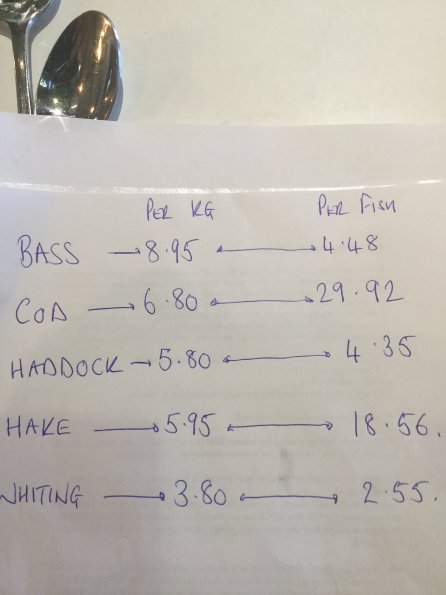 PER KG PER FISH
BASS → 8.95 ↔ 4.48
COD → 6.80 ↔ 29.92
HADDOCK → 5.80 ↔ 4.35
HAKE → 5.95 ↔ 18.56.
WHITING → 3.80 ↔ 2.55.